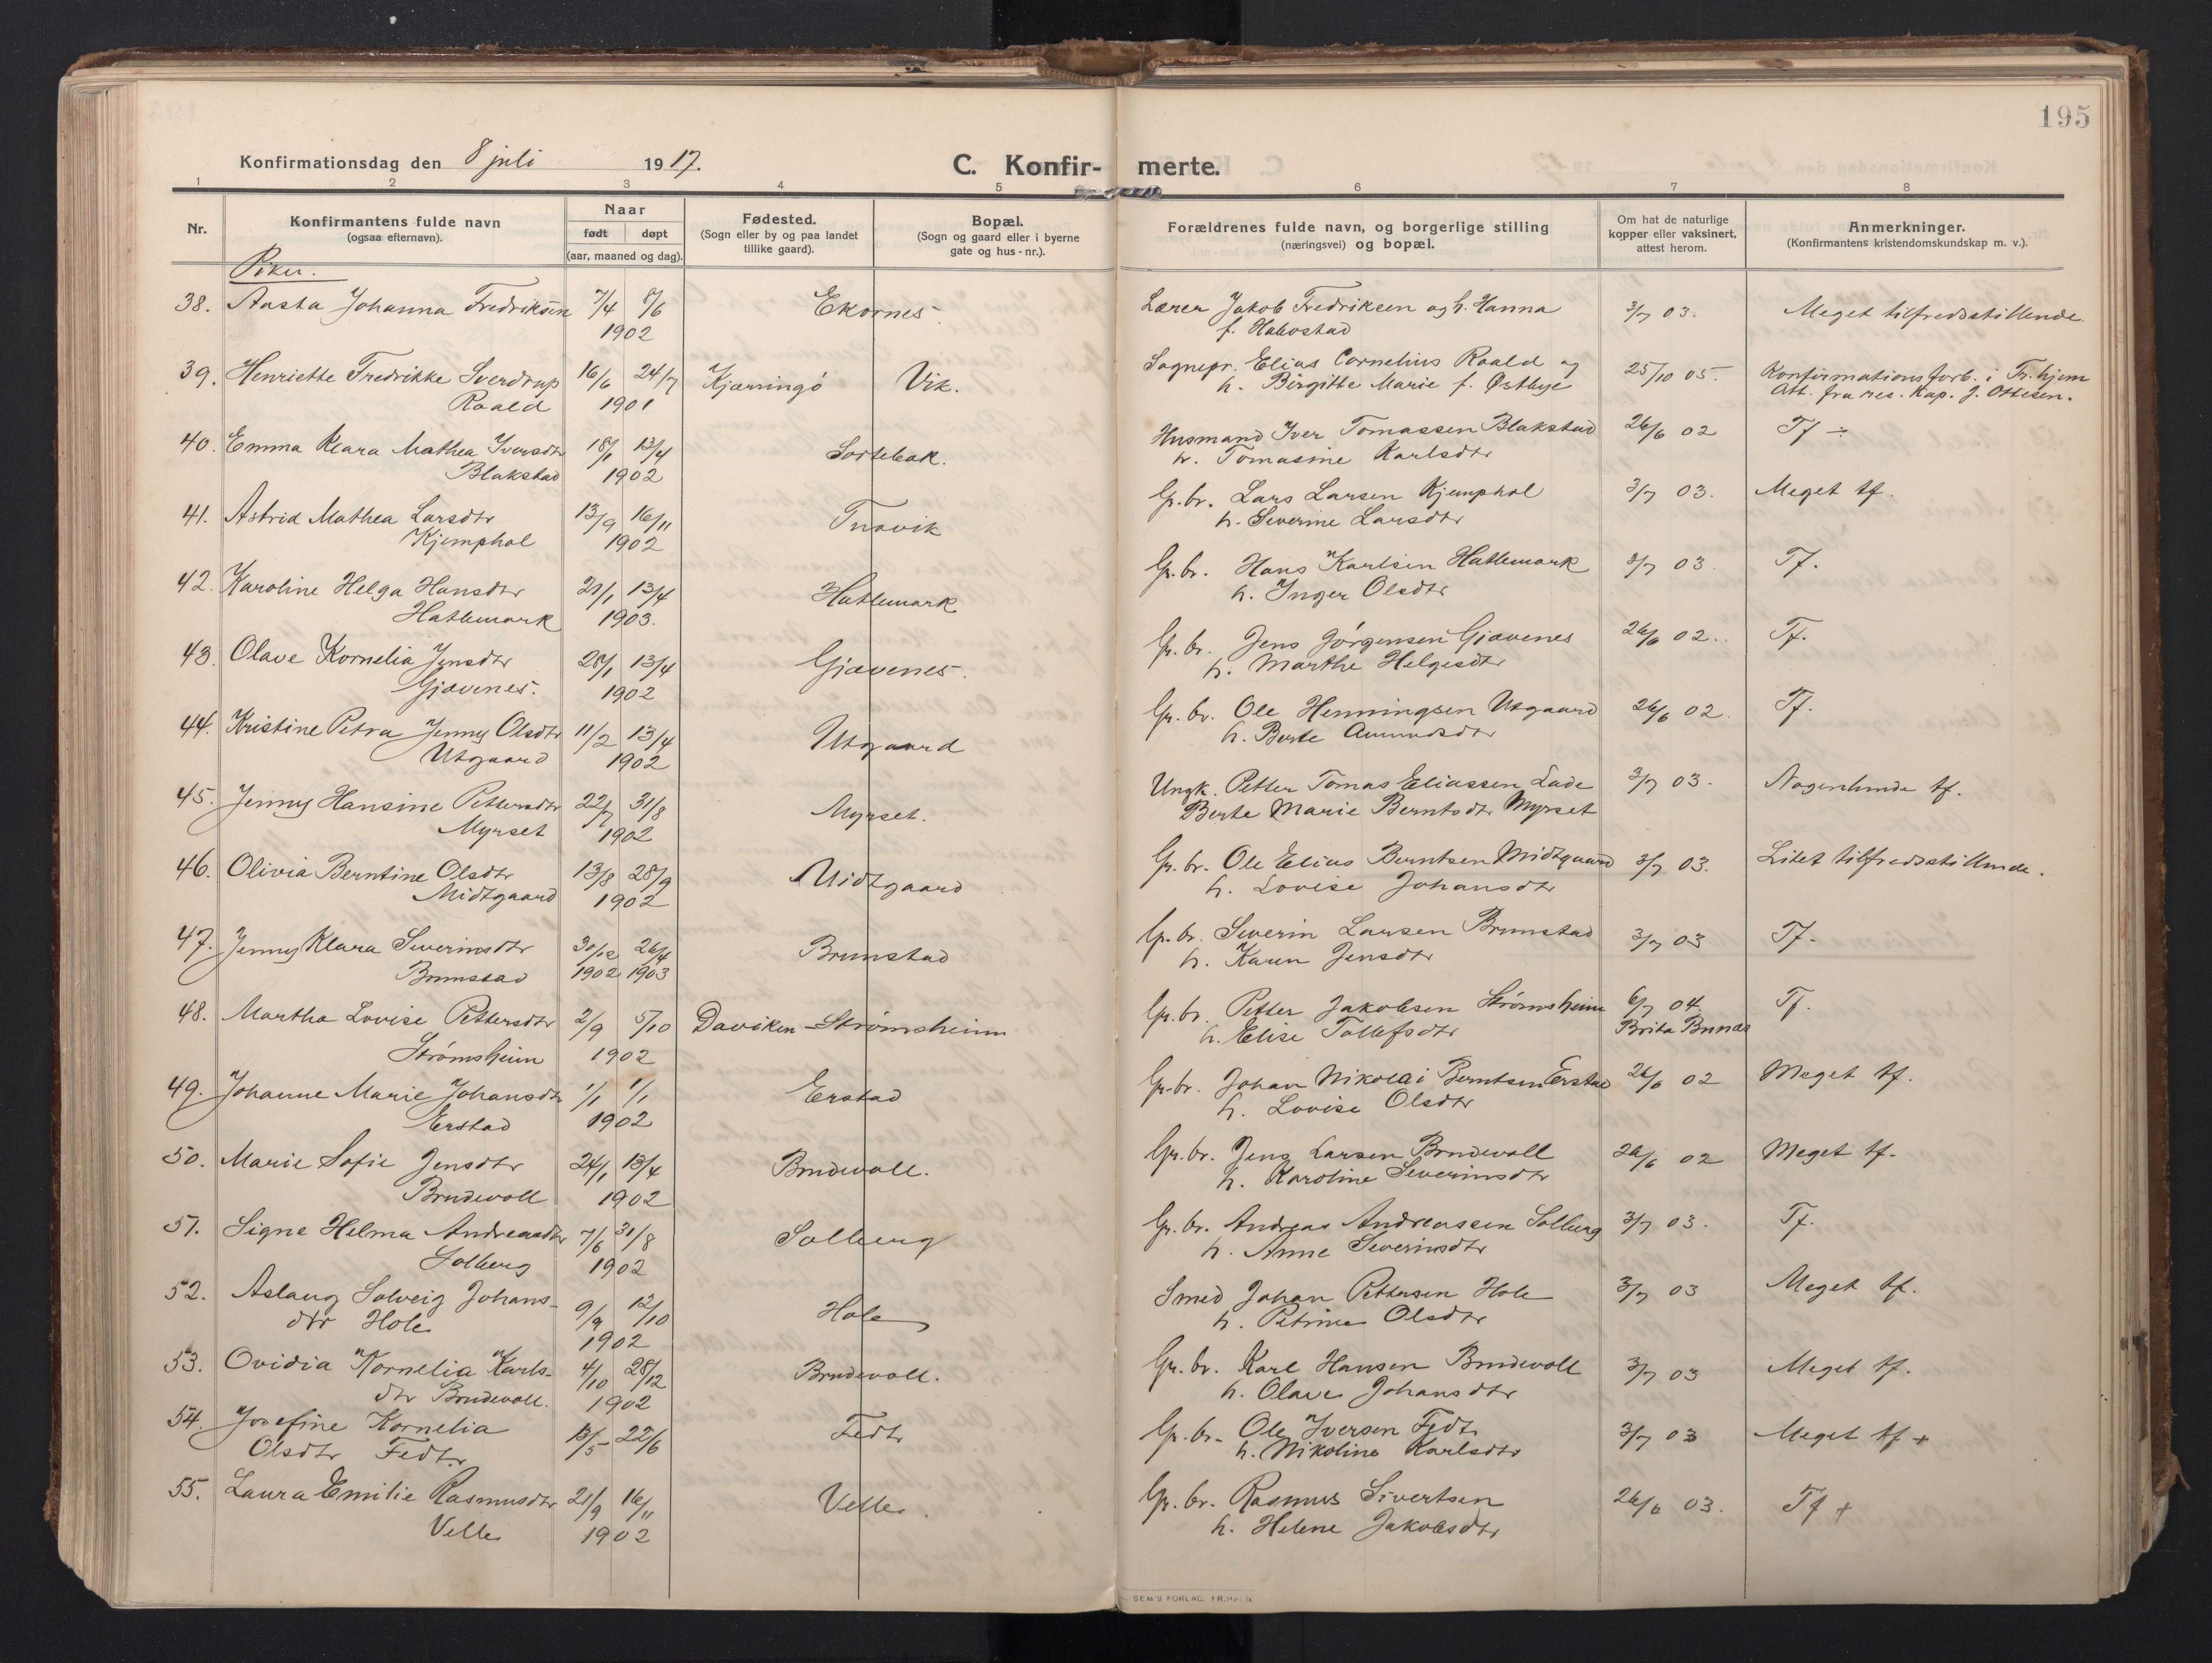 195
Konfirmationsdag den 8 juli 1917. C. Konfir- merte.
1 2 3 4 5 6 7 8
Nr. Konfirmantens fulde navn (ogsaa efternavn). Naar født døpt (aar, maaned og dag). Fødested. (Sogn eller by og paa landet tillike gaard). Bopæl. (Sogn og gaard eller i byerne gate og hus-nr.). Forældrenes fulde navn, og borgerlige stilling (næringsvei) og bopæl. Om hat de naturlige kopper eller vaksinert, attest herom. Anmerkninger. (Konfirmantens kristendomskundskap m. v.).
Piker.
38. Aasta Johanna Fredriksen 7/4 8/6 Ekornes. Lærer Jakob Fredriksen og h. Hanna 3/7 03. Meget tilfredsstillende.
1902 f. Habostad
39. Henriette Fredrikke Sverdrup 16/6 24/7 Kjærringö Vik. Sognepr. Elias Cornelius Roald og 25/10 05. Konfirmationsforb. i Tr.hjem
Roald 1901 h. Birgitte Marie f. Østbye Att. fra res. Kap. J. Ottesen.
40. Emma Klara Mathea Iversdtr 18/1 13/4 Sortebak. Husmand Iver Tomassen Blakstad 26/6 02 Tf ÷
Blakstad 1902 h. Tomasine Karlsdtr
41. Astrid Mathea Larsdtr 13/9 16/11 Tuavik Gr. br. Lars Larsen Kjemphol 3/7 03. Meget tf.
Kjemphol 1902 h. Severine Larsdtr
42. Karoline Helga Hansdtr 21/1 13/4 Hatlemark Gr. br. Hans Karlsen Hatlemark 3/7 03. Tf.
Hatlemark 1903. h. Inger Olsdtr
43. Olave Kornelia Jensdtr 28/1 13/4 Gjævenes. Gr. br. Jens Jørgensen Gjævenes 26/6 02. Tf.
Gjævenes. 1902 h. Marthe Helgesdtr
44. Kristine Petra Jenny Olsdtr 11/2 13/4 Utgaard Gr. br. Ole Henningsen Utgaard 26/6 02. Tf.
Utgaard 1902 h. Berte Amundsdtr
45. Jenny Hansine Pettersdtr 22/7 31/8 Myrset. Ungk. Petter Tomas Eliassen Lade 3/7 03. Nogenlunde tf.
Myrset 1902 Berte Marie Berntsdtr Myrset
46. Olivia Berntine Olsdtr 13/8 28/9 Midtgaard Gr. br. Ole Elias Berntsen Midtgaard 3/7 03. Litet tilfredsstillende.
Midtgaard 1902 h. Lovise Johansdtr
47. Jenny Klara Severinsdtr 30/12 26/4 Brunstad Gr. br. Severin Larsen Brunstad 3/7 03 Tf.
Brunstad 1902 1903 h. Karen Jensdtr
48. Martha Lovise Pettersdtr 2/9 5/10 Daviken - Strømsheim Gr. br. Petter Jakobsen Strømsheim 6/7 04 Tf.
Strømsheim 1902 h. Elise Tollefsdtr Brita Bunæs
49. Johanne Marie Johansdtr 1/1 1/1 Erstad Gr. br. Johan Nikolai Berntsen Erstad 26/6 02 Meget tf.
Erstad 1902 h. Lovise Olsdtr
50. Marie Sofie Jensdtr 24/1 13/4 Brudevoll. Gr. br. Jens Larsen Brudevoll 26/6 02 Meget tf.
Brudevoll 1902 h. Karoline Severinsdtr
51. Signe Helma Andreasdtr 7/6 31/8 Solberg Gr. br. Andreas Andreassen Solberg 3/7 03. Tf.
Solberg 1902 h. Anne Severinsdtr
52. Aslaug Solveig Johans- 9/9 12/10 Hole Smed Johan Pettersen Hole 3/7 03 Meget tf.
dtr Hole 1902 h. Petrine Olsdtr
53. Ovidia Kornelia Karls- 4/10 28/12 Brudevoll. Gr. br. Karl Hansen Brudevoll 3/7 03 Meget tf.
dtr Brudevoll. 1902 h. Olave Johansdtr
54. Josefine Kornelia 13/5 22/6 Fedt Gr. br. Ole Iversen Fedt 3/7 03 Meget tf +
Olsdtr Fedt. h. Nikoline Karlsdtr
55. Laura Emilie Rasmusdtr 21/9 16/11 Velle. Gr. br. Rasmus Sivertsen 26/6 03. Tf +
Velle 1902 h. Helene Jakobsdtr
SEM'S FORLAG. FR.HALD.